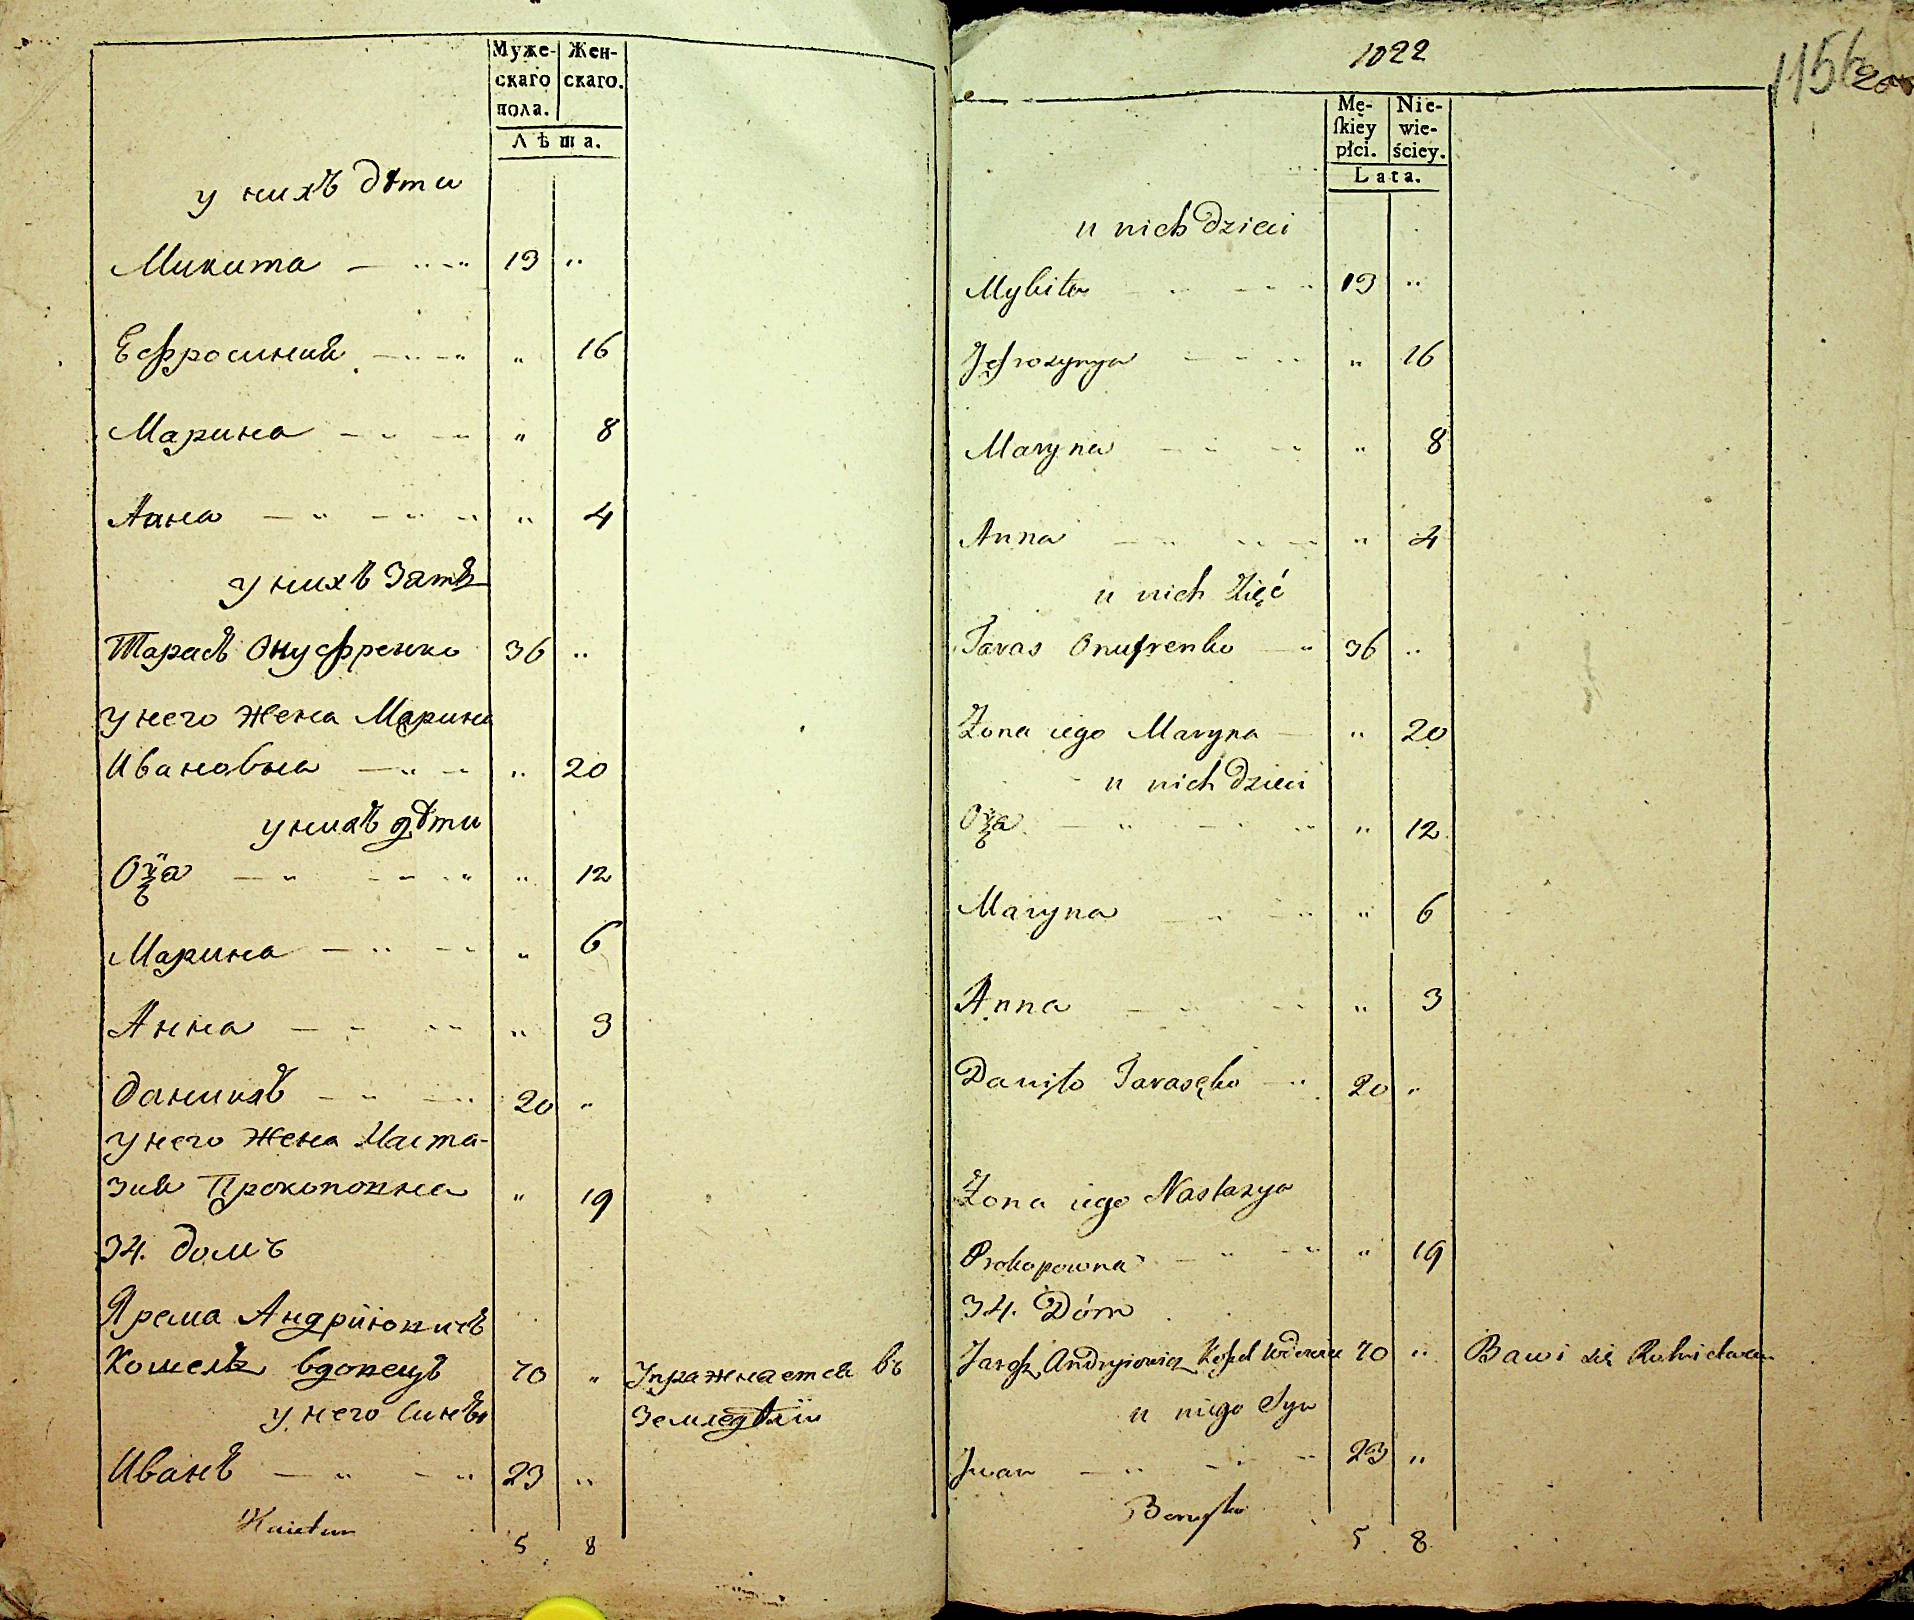 Муже- Жен-
скаго скаго.
пола.
Лѣта.
у нихъ дѣти
Микита 19 "
Ефросинія " 16
Марина " 8
Анна " 4
у нихъ Зать
Тарасъ Онуфренко 36 "
у него жена Марина
Ивановна " 20
у нихъ дѣти
" 12
Марина " 6
Анна " 3
Данилъ 20 "
у него жена Наста-
зия Прокоповна " 19
34. домъ
Ярема Андріювичъ
Кошель вдовецъ 70 " Упражнается въ
у него Синъ Земледѣліи
Иванъ 23 "
5 8
1022
Mę- Nie-
ſkiey wie-
płci. ściey.
Lata.
u nich dzieci
Mykita 19 "
Jefrozynya " 16
Maryna " 8
Anna " 4
u nich Zięć
Taras Onufrenko 36 "
Żona iego Maryna " 20
u nich dzieci
" 12
Maryna " 6
Anna " 3
Daniło Tarasęko 20 "
Żona iego Nastazya
Prokopowna " 19
34. Dóm
Andryiowicz 70 " Bawi się Rolnictwem
u niego Syn
Iwan 23 "
5 8